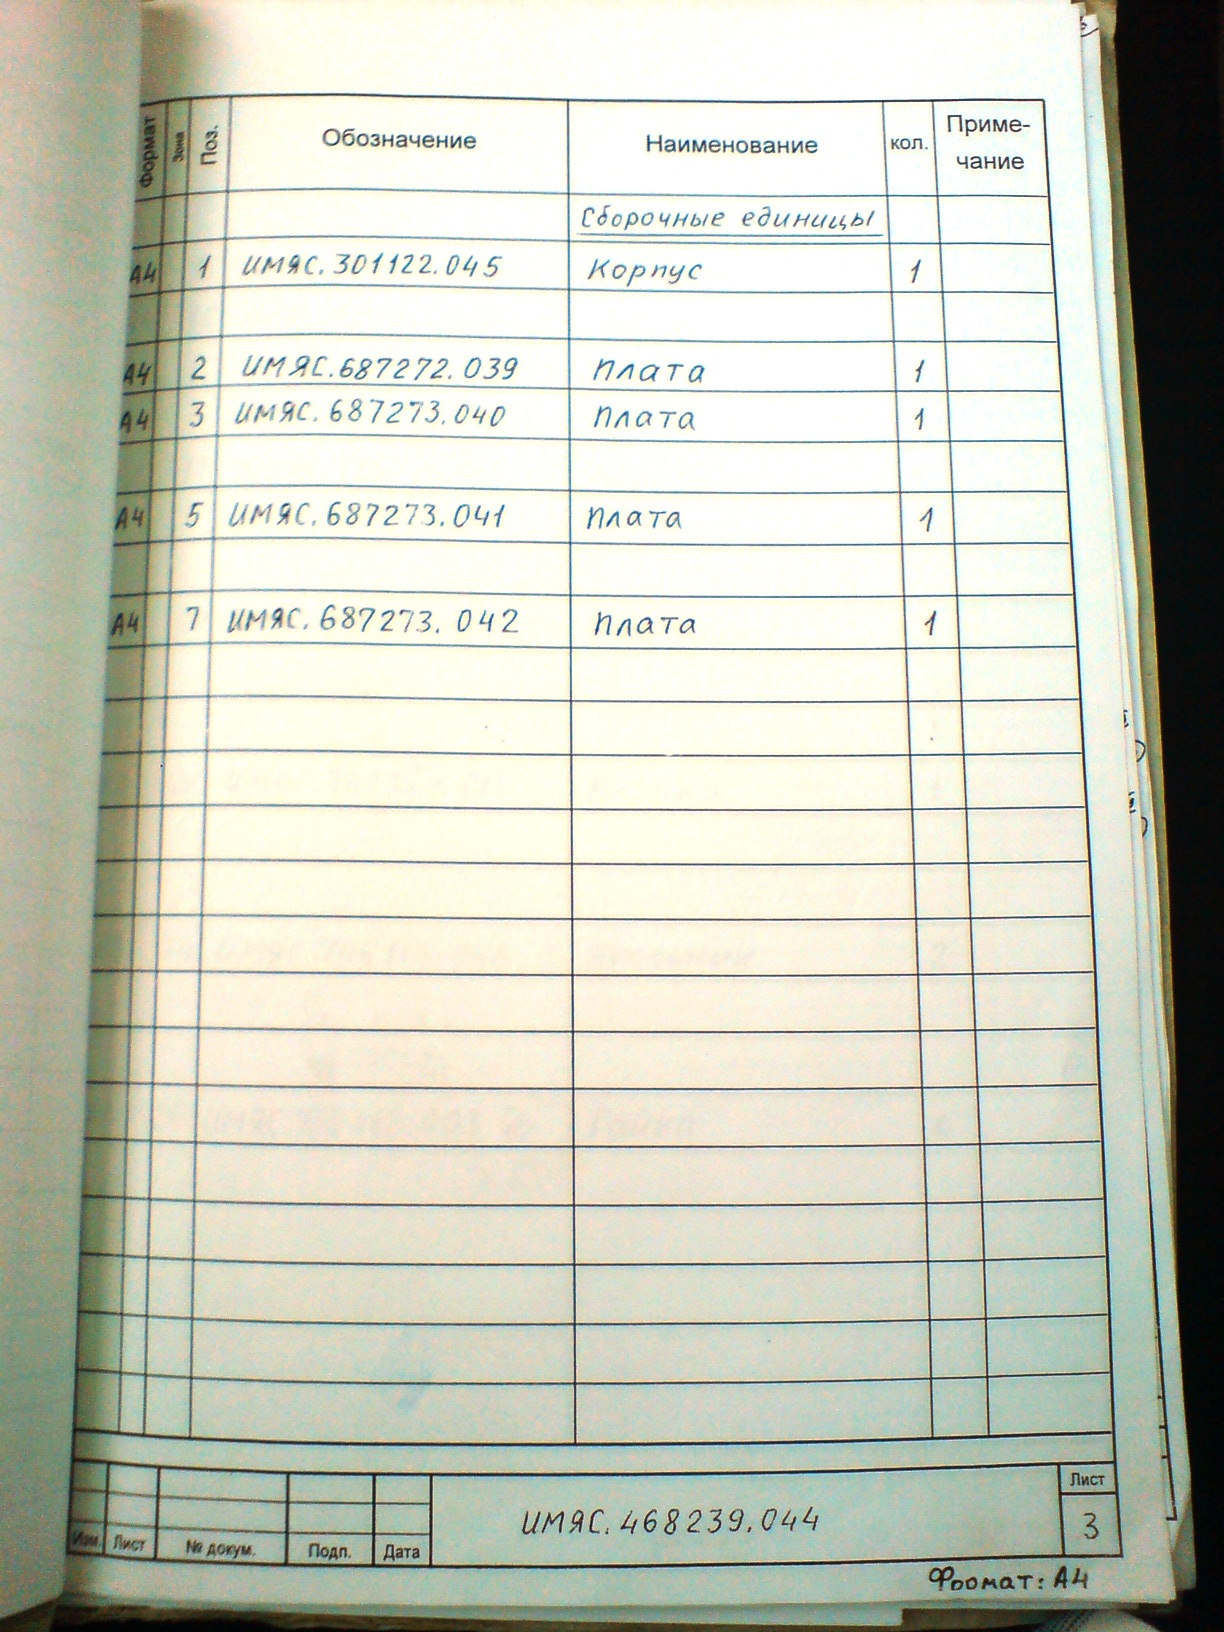 Формат Зона Поз. Обозначение Наименование кол. Приме-
чание
Сборочные единицы
А4 1 ИМЯС.301122.045 Корпус 1
А4 2 ИМЯС.687272.039 Плата 1
А4 3 ИМЯС.687273.040 Плата 1
А4 5 ИМЯС.687273.041 Плата 1
А4 7 ИМЯС.687273.042 Плата 1
Лист
ИМЯС.468239.044
3
Изм. Лист № докум. Подп. Дата
Фоомат: А4